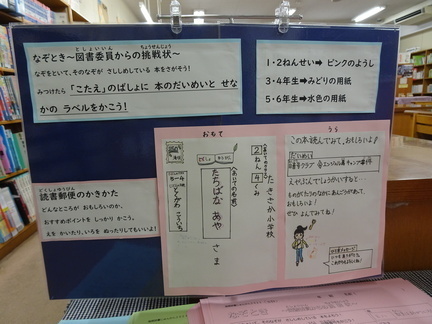 なぞとき～図書委員からの挑戦状～
としょいいん
ちょうせんじょう
なぞをといて、そのなぞが さししめしている 本をさがそう!
みつけたら 「こたえ」のばしょに 本のだいめいと せな
かの ラベルをかこう!
1・2ねんせい➡ ピンクのようし
3・4年生➡みどりの用紙
5・6年生➡水色の用紙
どくしょゆうびん
読書郵便のかきかた
どんなところが おもしろいのか、
おすすめポイントを しっかり かこう。
え を かいたり、いろを ぬったりしてもいいよ!
おもて
たきさか小学校
2 ねん 4 くみ
たちばな あや さま
うら
この本読んでみて、おもしろいよ
だいめい
えをぶんでしょうかいすると…
おもしろいよ!
ぜひ よんでみてね!